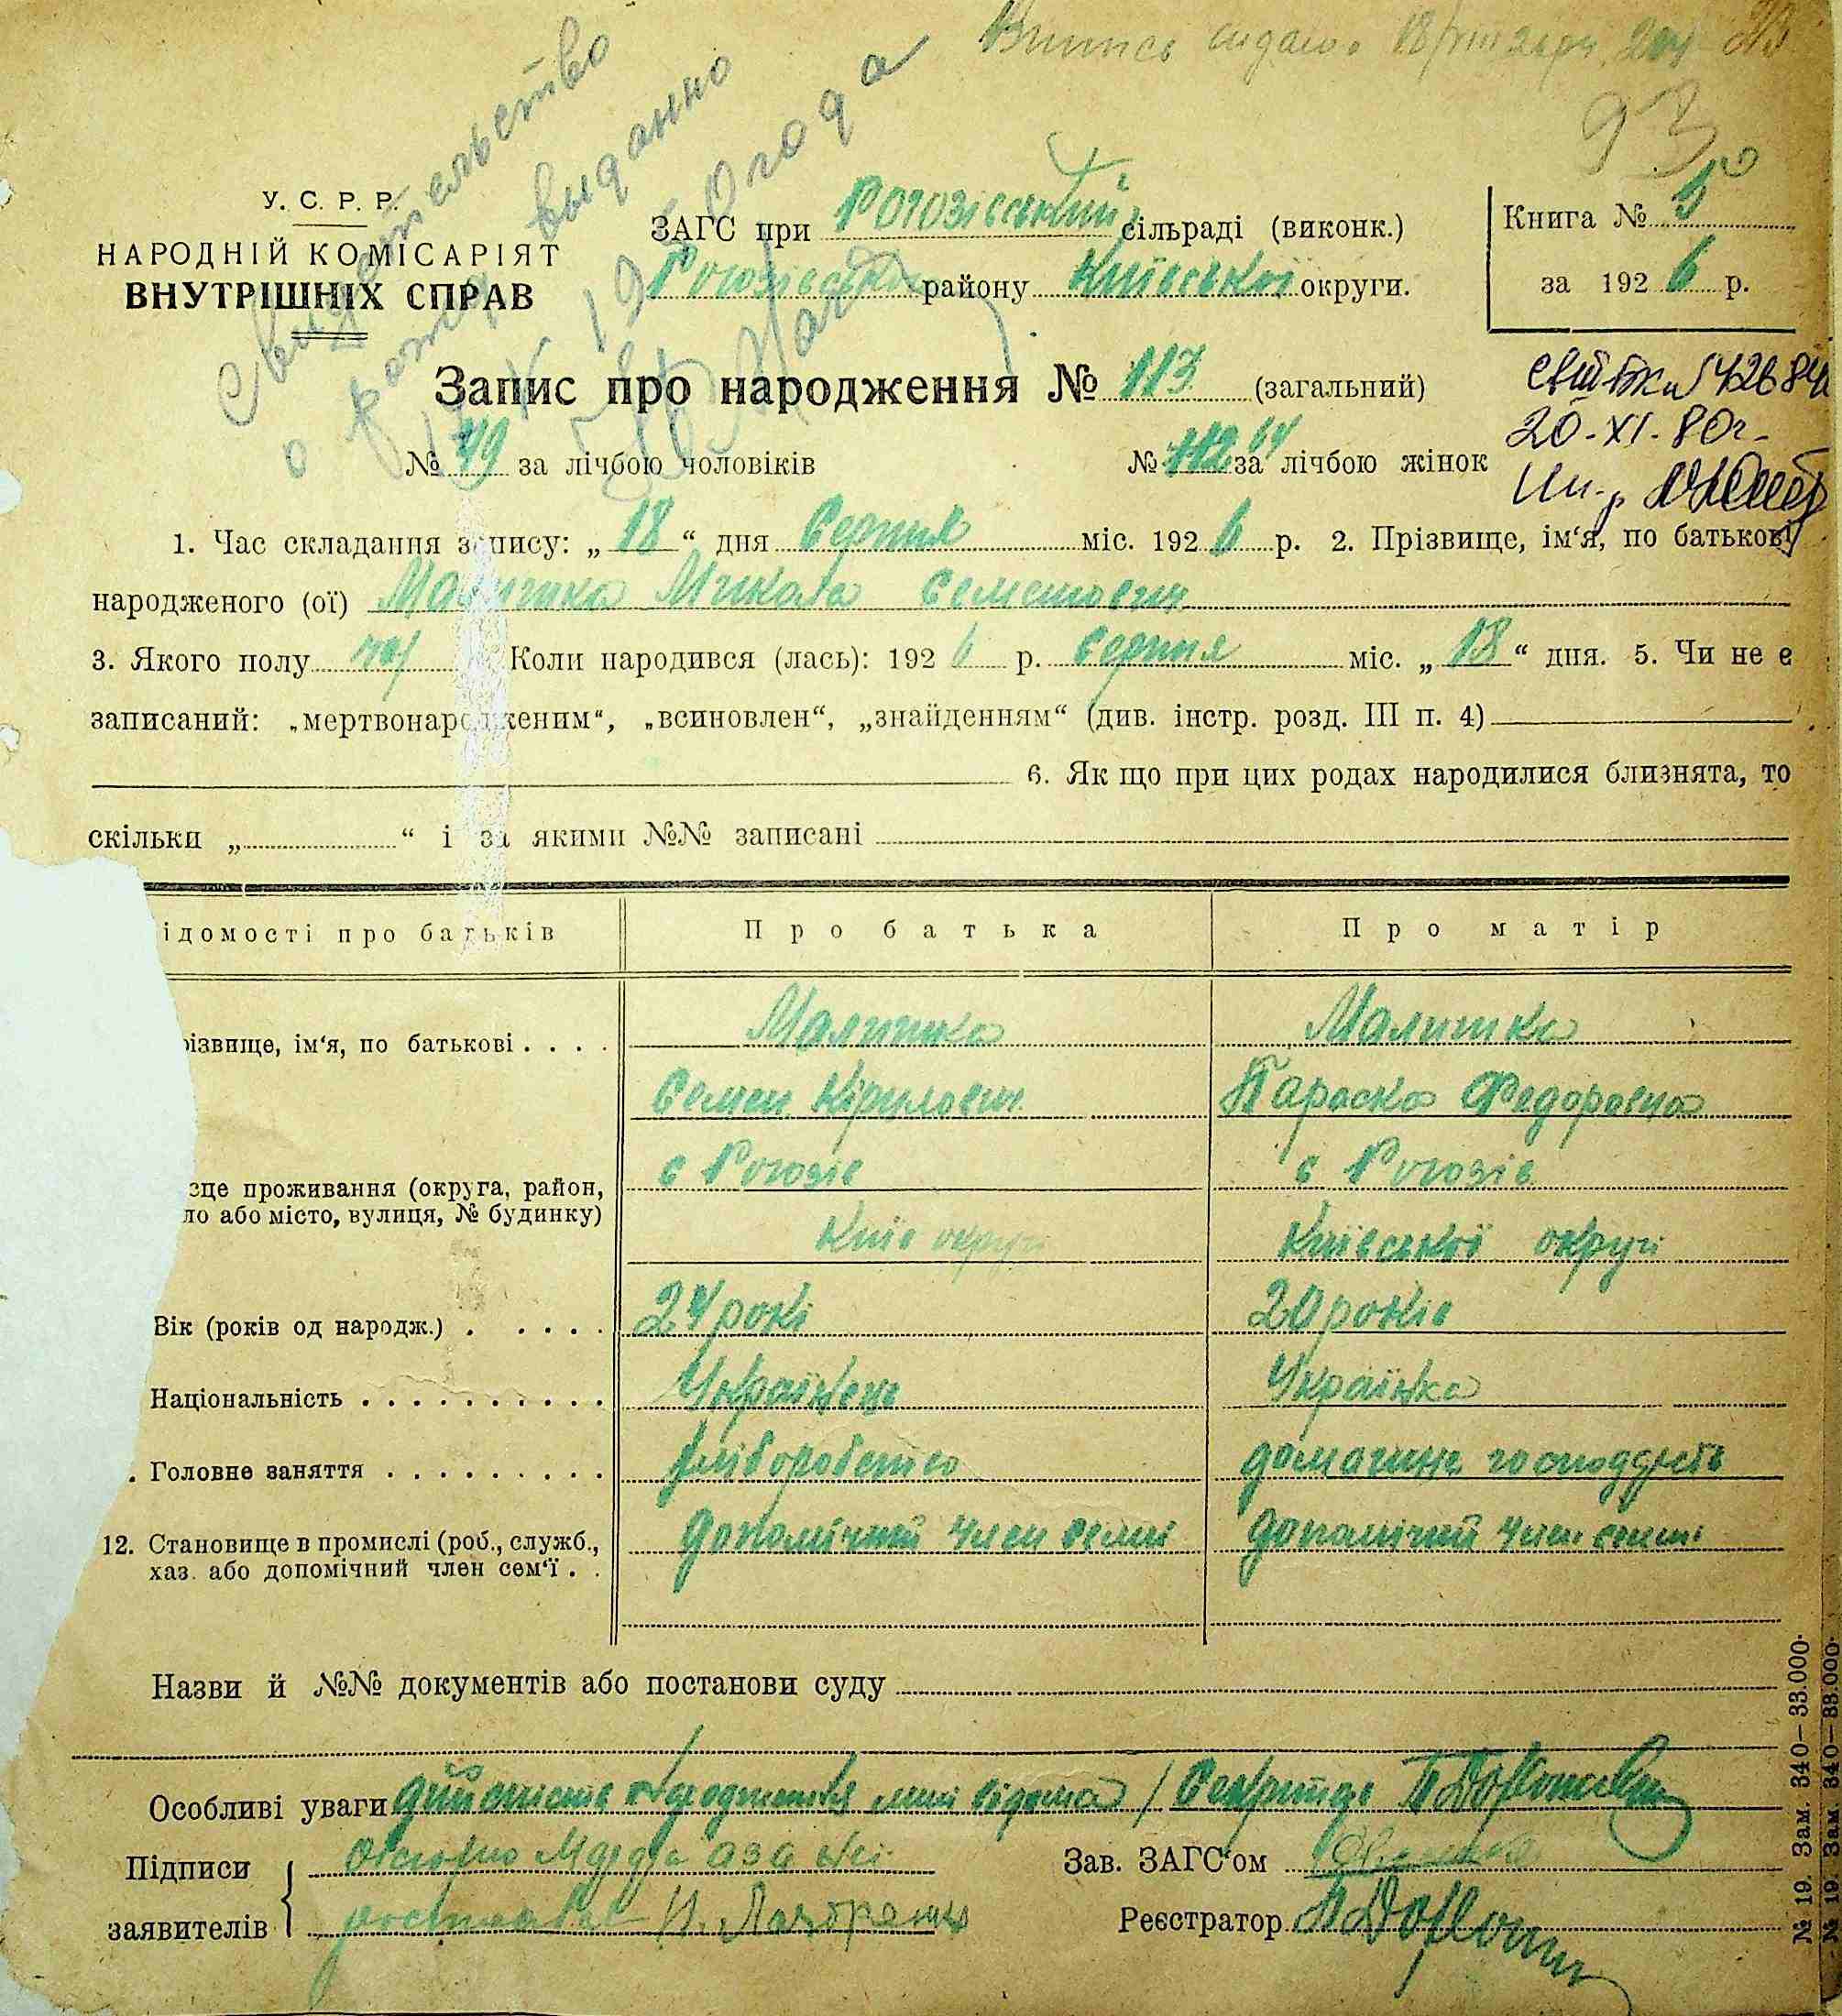 Свидетельство
о рожд выданно
года
93
У. С. Р. Р.
НАРОДНІЙ КОМІСАРІЯТ
ВНУТРІШНІХ СПРАВ
ЗАГС при Рогозівський сільраді (виконк.)
району Київської округи.
Книга № 5
за 1926 р.
Запис про народження № 113 (загальний)
20-XI-80г.
№ 49 за лічбою чоловіків № 64 за лічбою жінок
1. Час складання запису: „18“ дня Серпня міс. 1926 р. 2. Прізвище, ім‘я, по батькові
народженого (ої) Малишко Микола Семенович
3. Якого полу чол Коли народився (лась): 1926 р. Серпня міс. „18“ дня. 5. Чи не є
записаний: „мертвонародженим“, „всиновлен“, „знайденням“ (див. інстр. розд. III п. 4)
6. Як що при цих родах народилися близнята, то
скільки „ “ і за якими №№ записані
ідомості про батьків Про батька Про матір
різвище, ім‘я, по батькові . . . . Малишко Малишко
Семен Кірилович Параска Федоровна
с Рогозів с Рогозів
сце проживання (округа, район,
ло або місто, вулиця, № будинку)
Київ округи Київської округи
Вік (років од народж.) . . . . . 24 рокі 20 років
Національність . . . . . . . . . . Українець Українка
. Головне заняття . . . . . . . . . хліборобство домашнє
12. Становище в промислі (роб., служб., допомічний член семї допомічний член семї
хаз. або допомічний член сем‘ї . .
Назви й №№ документів або постанови суду
Особливі уваги народження мені відома / Секритар
Підписи
заявителів
Зав. ЗАГС‘ом
Реєстратор
№ 19. Зам. 340—33.000.
№ 19. Зам. 340—33.000.